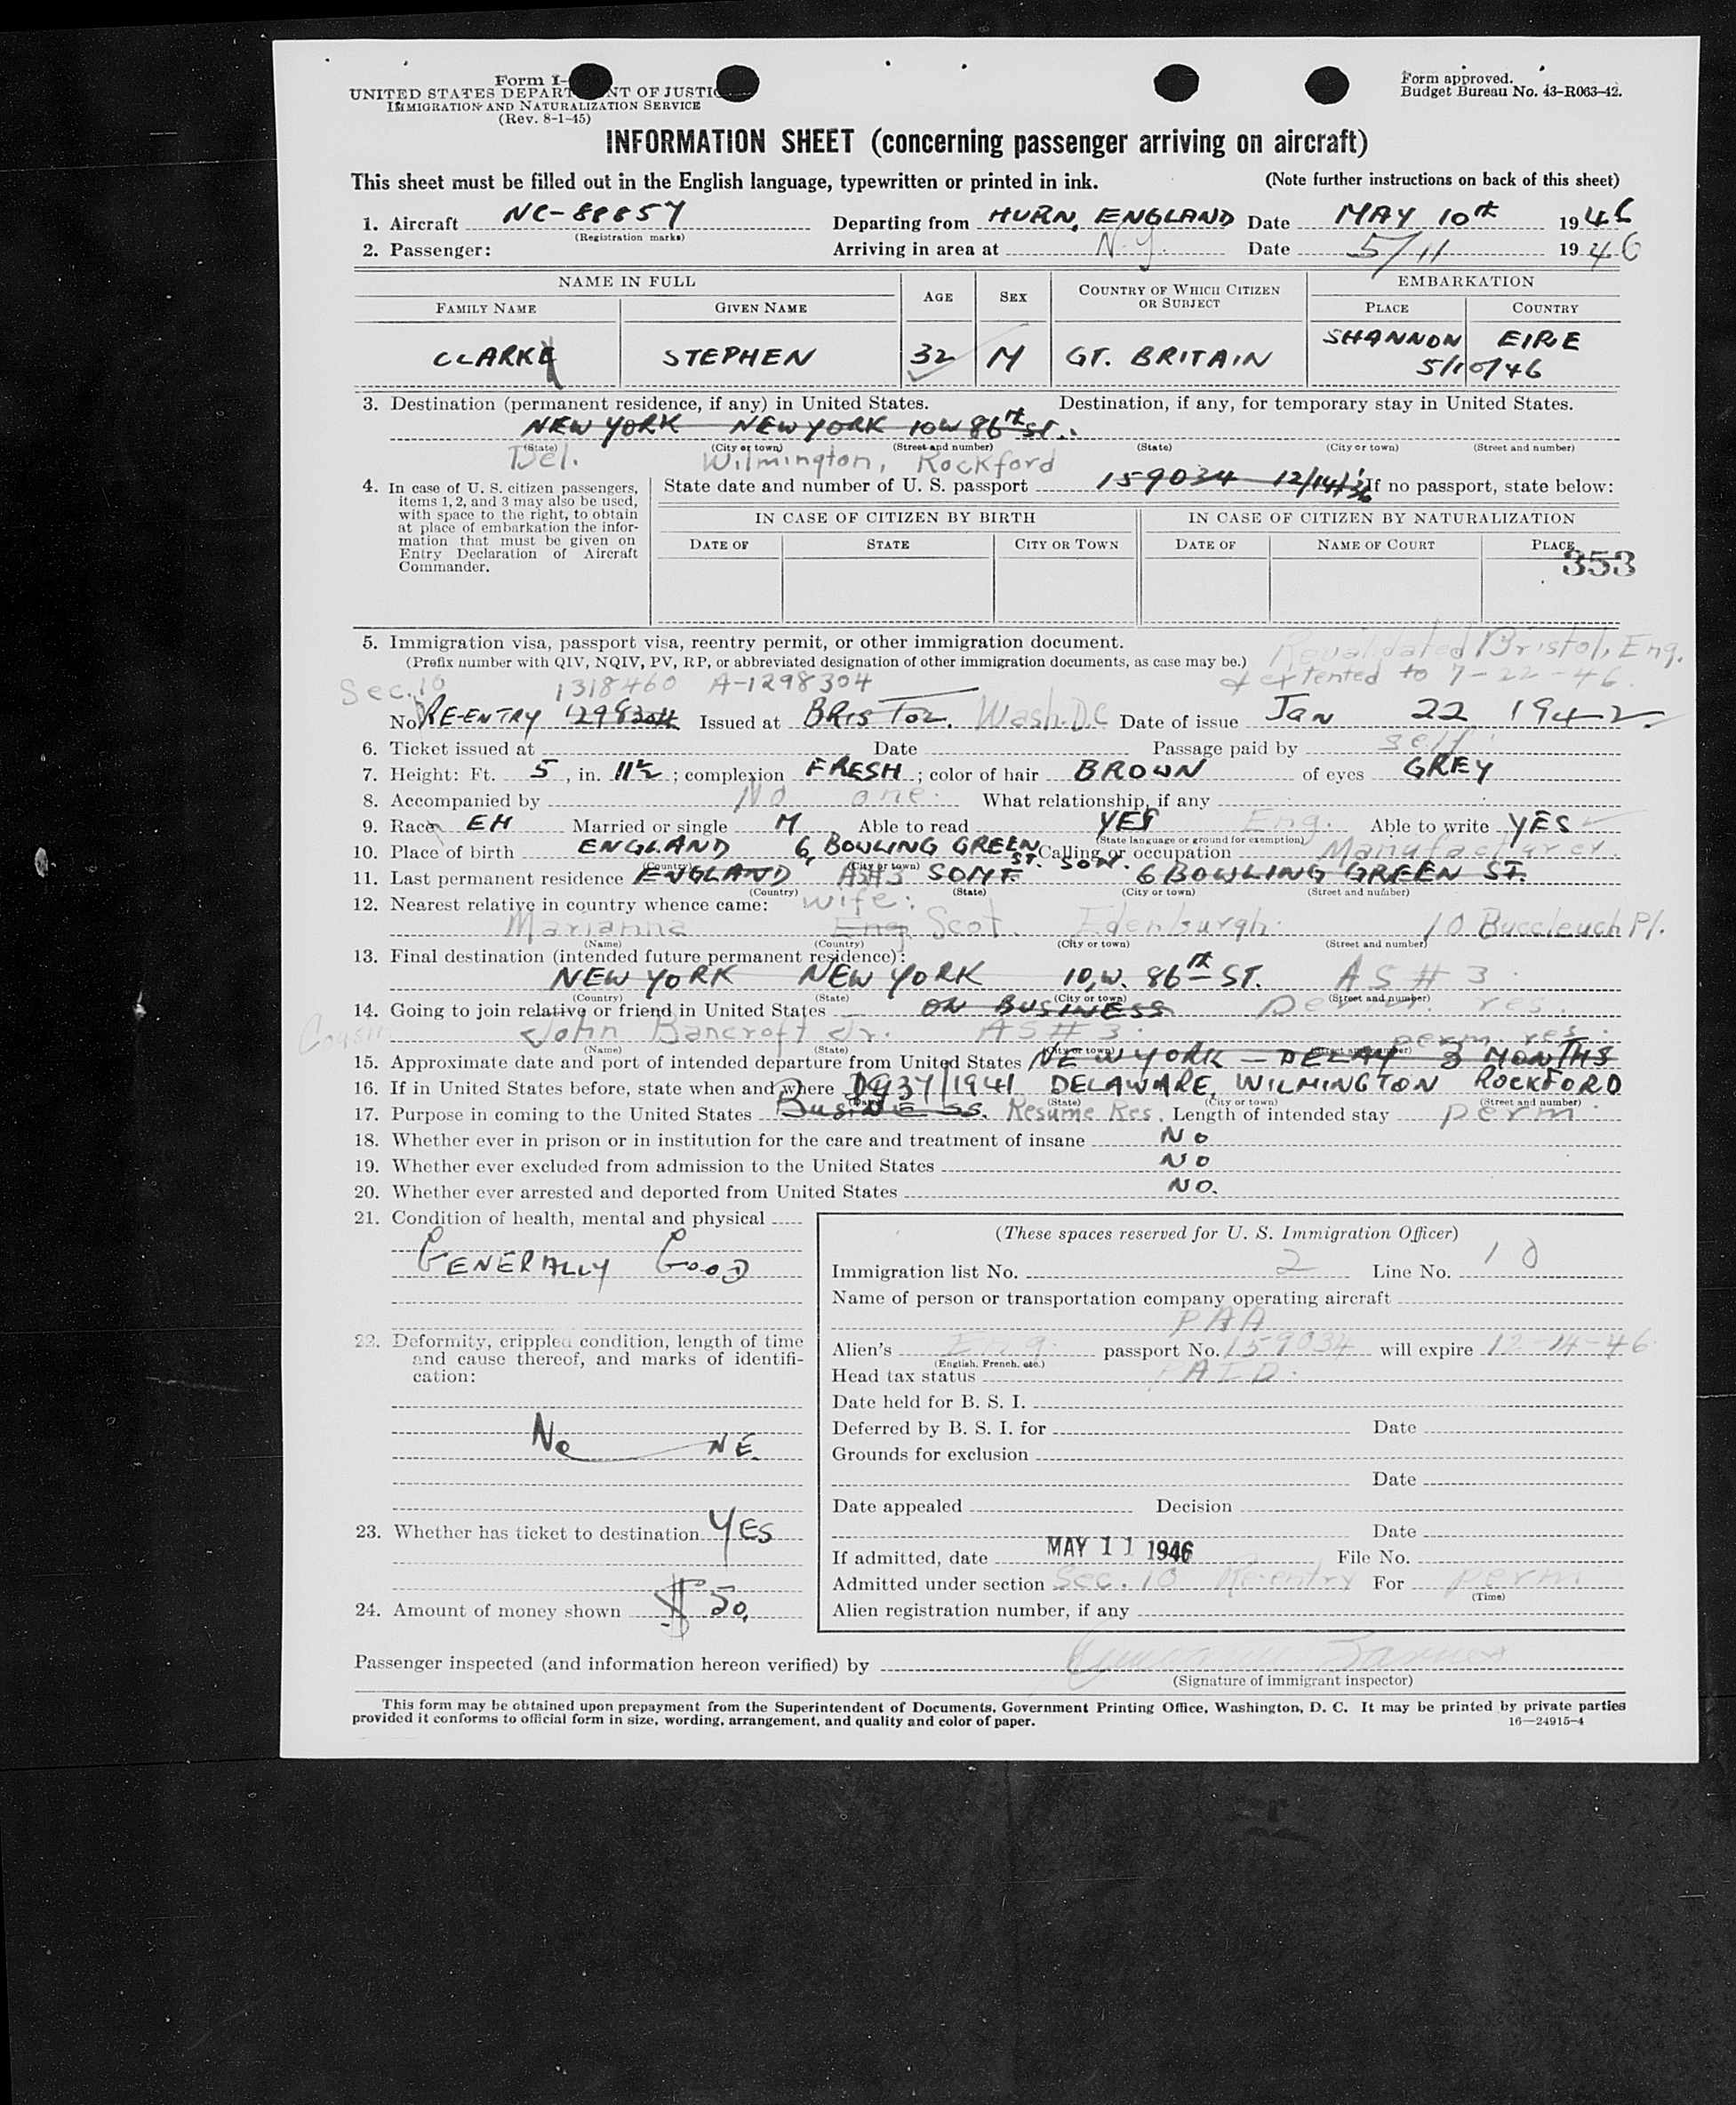 Form I-
UNITED STATES DEPART NT OF JUSTIC
IMMIGRATION AND NATURALIZATION SERVICE
(Rev. 8-1-45)
Form approved.
Budget Bureau No. 43-R063-42.
INFORMATION SHEET (concerning passenger arriving on aircraft)
This sheet must be filled out in the English language, typewritten or printed in ink. (Note further instructions on back of this sheet)
1. Aircraft NC-88857 Departing from HURN, ENGLAND Date MAY 10th 1946
(Registration marks)
2. Passenger: Arriving in area at N.Y. Date 5/11 1946
NAME IN FULL AGE SEX COUNTRY OF WHICH CITIZEN OR SUBJECT EMBARKATION
FAMILY NAME GIVEN NAME PLACE COUNTRY
CLARK STEPHEN 32 M GT. BRITAIN SHANNON EIRE
5/10/46
3. Destination (permanent residence, if any) in United States. Destination, if any, for temporary stay in United States.
NEW YORK NEW YORK 10 W 86th ST.
(State) (City or town) (Street and number) (State) (City or town) (Street and number)
Del. Wilmington, Rockford
4. In case of U. S. citizen passengers, items 1, 2, and 3 may also be used, with space to the right, to obtain at place of embarkation the information that must be given on Entry Declaration of Aircraft Commander.
State date and number of U. S. passport 159034 12/14/36 If no passport, state below:
IN CASE OF CITIZEN BY BIRTH IN CASE OF CITIZEN BY NATURALIZATION
DATE OF STATE CITY OR TOWN DATE OF NAME OF COURT PLACE
353
5. Immigration visa, passport visa, reentry permit, or other immigration document.
(Prefix number with QIV, NQIV, PV, RP, or abbreviated designation of other immigration documents, as case may be.)
Revalidated Bristol, Eng.
& extented to 7-22-46.
Sec. 10 1318460 A-1298304
No. RE-ENTRY 1298304 Issued at BRISTOL. Wash. D.C Date of issue Jan 22 1942
6. Ticket issued at Date Passage paid by self
7. Height: Ft. 5, in. 11½; complexion FRESH; color of hair BROWN of eyes GREY
8. Accompanied by No one. What relationship, if any
9. Race EH Married or single M Able to read YES Eng. Able to write YES
(State language or ground for exemption)
10. Place of birth ENGLAND 6, BOWLING GREEN ST. SOM. Calling or occupation Manufacturer.
(Country) (City or town)
11. Last permanent residence ENGLAND AS#3 SOMT. 6 BOWLING GREEN ST.
(Country) (State) (City or town) (Street and number)
12. Nearest relative in country whence came: wife:
Marianna Eng Scot. Edenburgh. 10 Buccleuch Pl.
(Name) (Country) (City or town) (Street and number)
13. Final destination (intended future permanent residence):
NEW YORK NEW YORK 10, W. 86th ST. AS#3
(Country) (State) (City or town) (Street and number)
14. Going to join relative or friend in United States ON BUSINESS perm. res.
Cousin John Bancroft Jr. AS#3. perm. res.
(Name) (State) (City or town) (Street and number)
15. Approximate date and port of intended departure from United States NEW YORK - DELAY 3 MONTHS
16. If in United States before, state when and where 1937/1941 DELAWARE, WILMINGTON ROCKFORD
(State) (City or town) (Street and number)
17. Purpose in coming to the United States BUSINESS. Resume Res. Length of intended stay perm.
18. Whether ever in prison or in institution for the care and treatment of insane No
19. Whether ever excluded from admission to the United States NO
20. Whether ever arrested and deported from United States NO.
21. Condition of health, mental and physical
GENERALLY GOOD
22. Deformity, crippled condition, length of time and cause thereof, and marks of identification:
No NE.
23. Whether has ticket to destination YES
24. Amount of money shown $50.
(These spaces reserved for U. S. Immigration Officer)
Immigration list No. 2 Line No. 10
Name of person or transportation company operating aircraft
PAA
Alien's Eng. passport No. 159034 will expire 12-14-46
(English, French, etc.)
Head tax status PAID.
Date held for B. S. I.
Deferred by B. S. I. for Date
Grounds for exclusion
Date
Date appealed Decision
Date
If admitted, date MAY 11 1946 File No.
Admitted under section Sec. 10 Re-entry For perm
(Time)
Alien registration number, if any
Passenger inspected (and information hereon verified) by
(Signature of immigrant inspector)
This form may be obtained upon prepayment from the Superintendent of Documents, Government Printing Office, Washington, D. C. It may be printed by private parties
provided it conforms to official form in size, wording, arrangement, and quality and color of paper. 16—24915-4